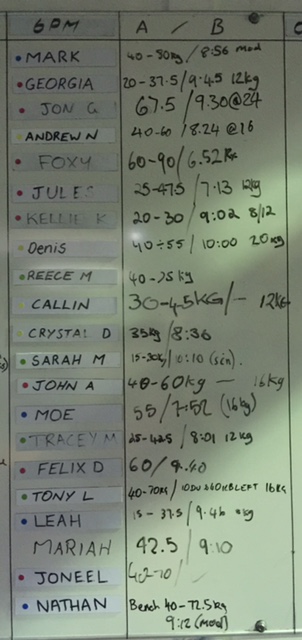 6PM A / B C
MARK 40-50kg / 8:56 mod
GEORGIA 20-37.5 / 9:45 12kg
JON G 67.5 / 9.30@24
ANDREW N 40-60 / 8.24 @16
FOXY 60-90 / 6.52 Rx
JULES 25-47.5 / 7:13 12kg
KELLIE K 20-30 / 9:02 8/12
Denis 40-55 / 10:00 20kg
REECE M 40-75kg
CALLIN 30-45KG / - 12kg
CRYSTAL D 35kg / 8:36
SARAH M 15-30kg / 10:10
JOHN A 40-60kg - 16kg
MOE 55 / 7:52 (16kg)
TRACEY M 25-42.5 / 8:01 12kg
FELIX D 60 / 9.40
TONY L 40-70kg / LEFT 16kg
LEAH 15-37.5 / 9.46 kg
MARIAH 42.5 / 9:10
JONEEL 40-70 /
NATHAN Bench 40-72.5kg
9:12 (mod)